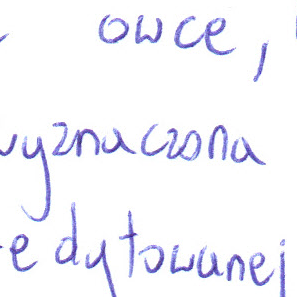 owce,
wyznaczona
edytowanej